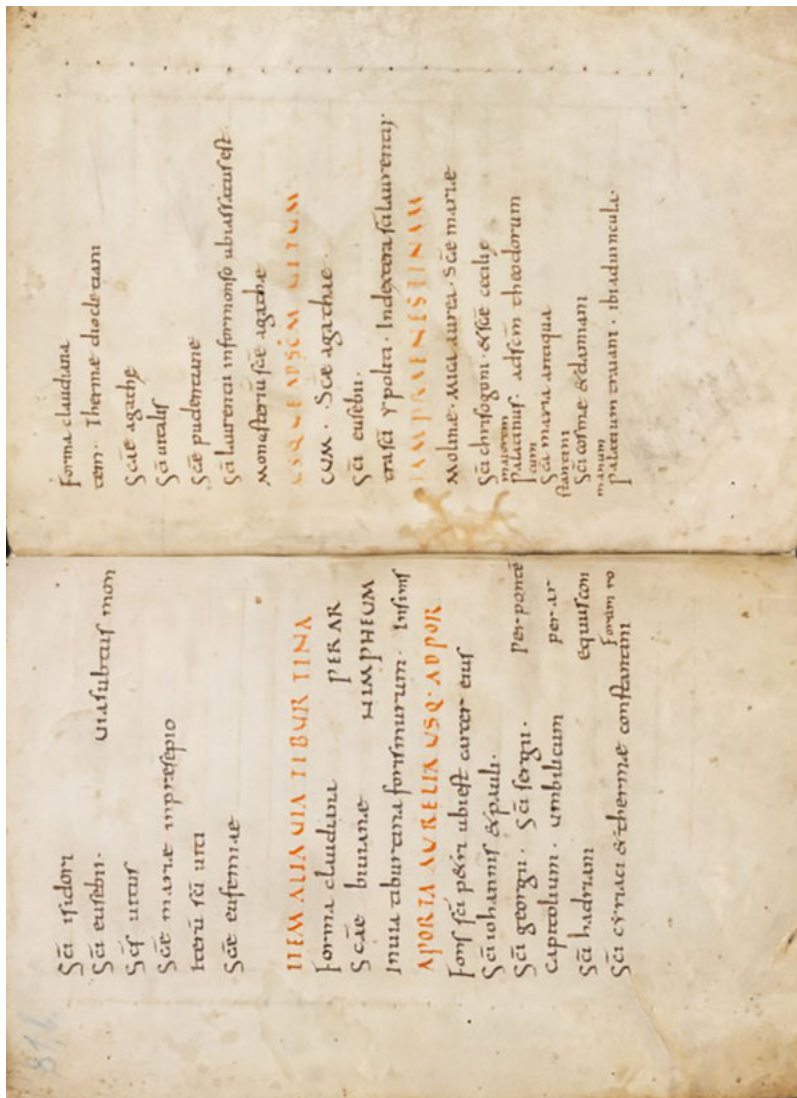 Scī isidori
Scī eusebii · Via subtus mon
Scs̄ uitus
Scǣ mariæ inpræsepio
Iterū scī uiti
Scǣ eufemiae
ITEM ALIA UIA TIBURTINA
Forma claudiana PER AR
Scae biuianæ NIMPHEUM
Inuia tiburtina foris murum · Insinis
APORTA AURELIA USQ· AD POR
Fons scī petri ubi est carcer eius
Scī iohannis & pauli·
Scī georgii · Scī sergii · Per pontē
Capitolium · umbilicum per ar
Scī hadriani equus con
Forum ro
Scī cyriaci & thermæ constantini
Forma claudiana
cem · Thermæ diocletiani
Scāe agathę
Scī uitalis
Scǣ pudentiane
Scī laurentii informonso ubi assatus est·
Monasteriū scǣ agathæ
USQUE AD SCM̄ UITUM
CUM · Scǣ agathae ·
Scī eusebii·
tra sci ypoliti · Indextera scī laurentii·
IAM PRAENESTINAM
Molinæ · Mica aurea · Scǣ mariæ
Scī chrisogoni · & scǣ cecilię
maiorem
Palatinus · ad scm̄ theodorum
cum
Scā maria antiqua
stantini
Scī cosmæ & damiani
manum
Palatium traiani · ibi aduincula·